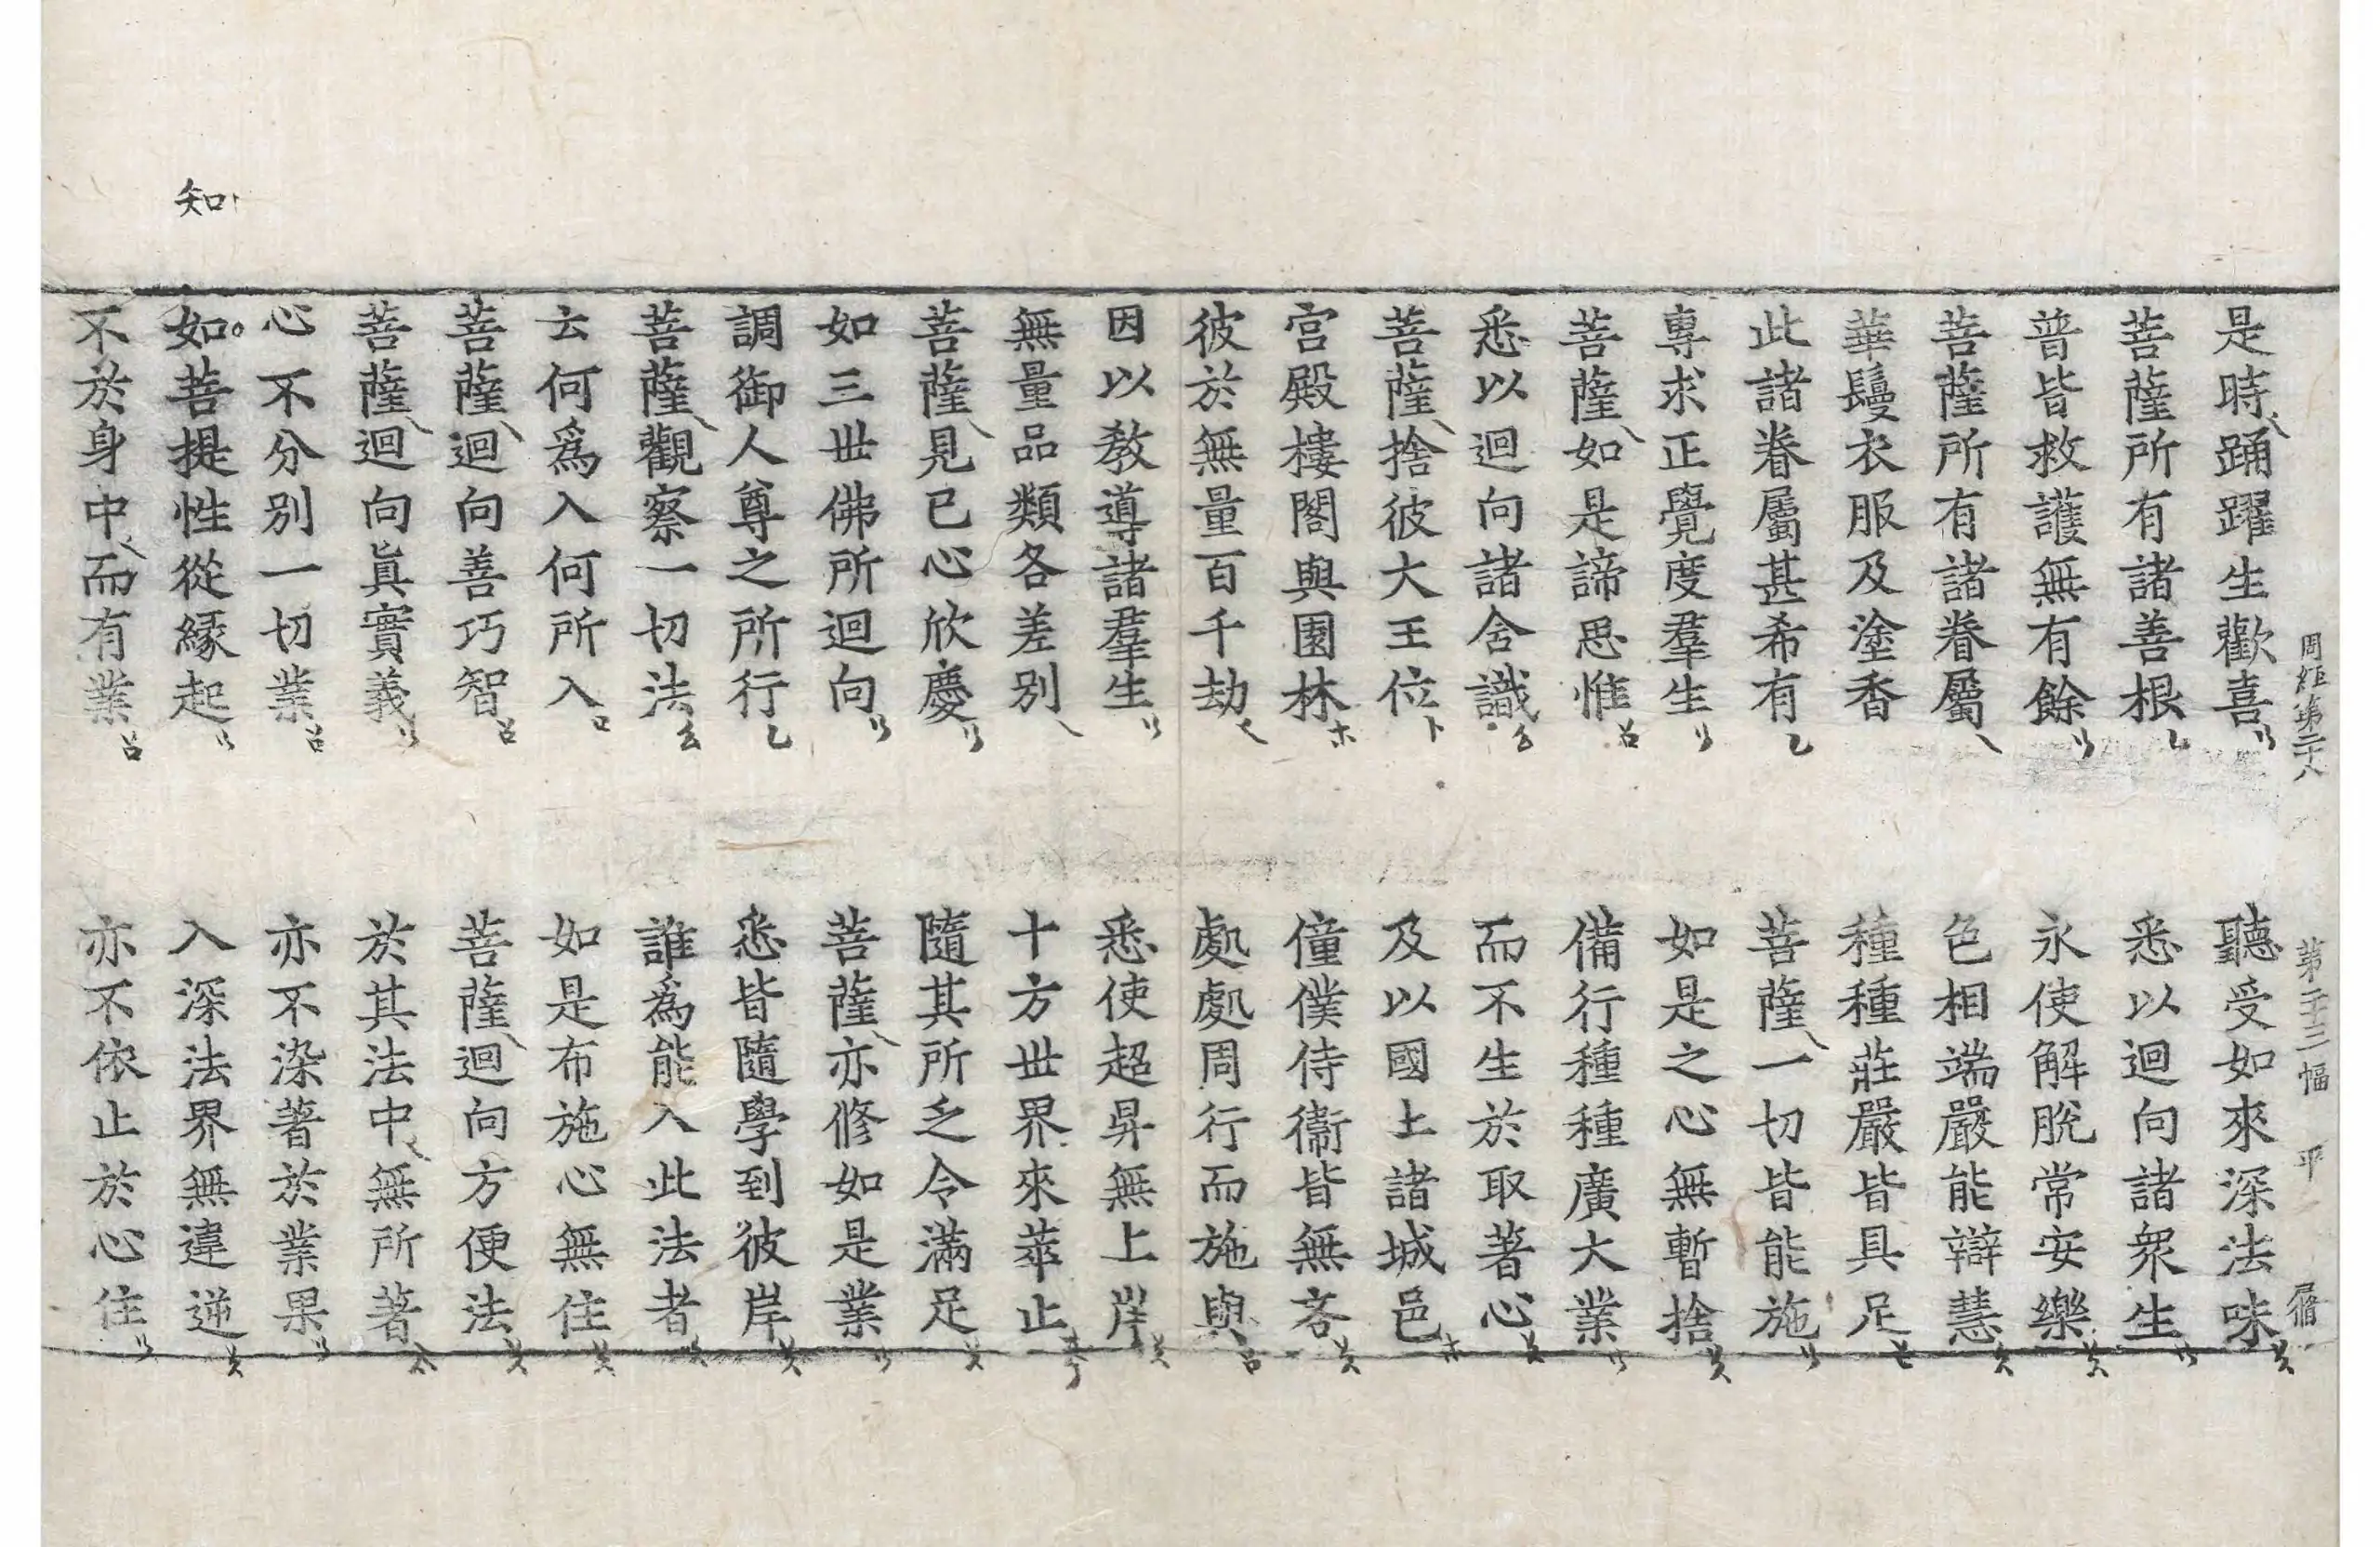 周經第二十八 第二十三幅 平
是時踊躍生歡喜 聽受如來深法味
菩薩所有諸善根 悉以迴向諸衆生
普皆救護無有餘 永使解脫常安樂
菩薩所有諸眷屬 色相端嚴能辯慧
華鬘衣服及塗香 種種莊嚴皆具足
此諸眷屬甚希有 菩薩一切皆能施
專求正覺度羣生 如是之心無暫捨
菩薩如是諦思惟 備行種種廣大業
悉以迴向諸含識 而不生於取著心
菩薩捨彼大王位 及以國土諸城邑
宮殿樓閣與園林 僮僕侍衞皆無吝
彼於無量百千劫 處處周行而施與
因以教導諸羣生 悉使超昇無上岸
無量品類各差別 十方世界來萃止
菩薩見已心欣慶 隨其所乏令滿足
如三世佛所迴向 菩薩亦修如是業
調御人尊之所行 悉皆隨學到彼岸
菩薩觀察一切法 誰為能入此法者
云何爲入何所入 如是布施心無住
菩薩迴向善巧智 菩薩迴向方便法
菩薩迴向眞實義 於其法中無所著
心不分別一切業 亦不染著於業果
知
如菩提性從緣起 入深法界無違逆
不於身中而有業 亦不依止於心住